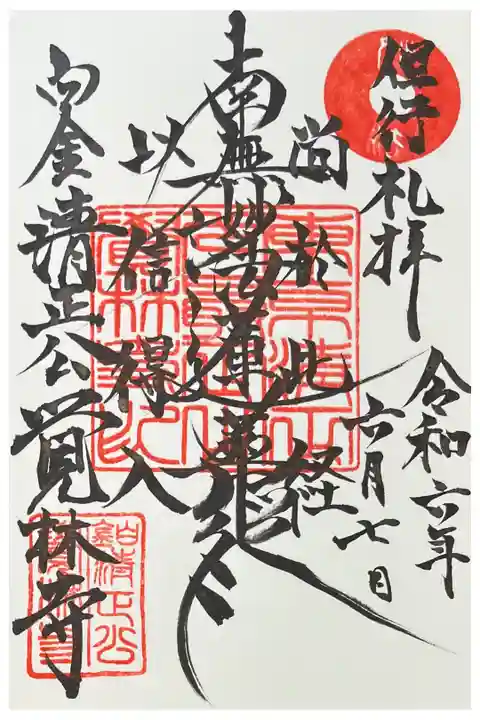 但行礼拝
令和六年
六月七日
尚於此経
南無妙法蓮華経
以信得入
白金清正公
覚林寺